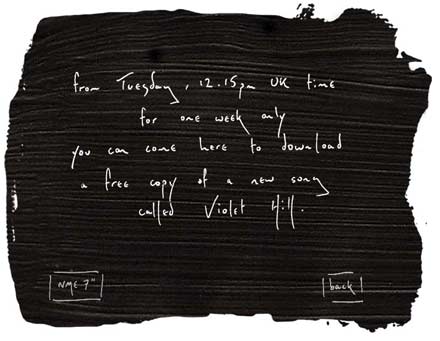 from Tuesday, 12.15pm UK time
for one week only
you can come here to download
a free copy of a new song
called Violet Hill.
NME 7"
back